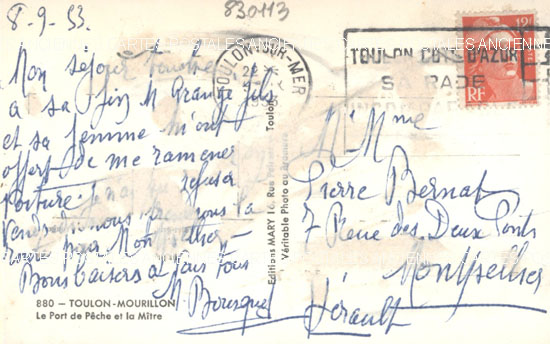 8-9-53.
830113
Mon séjour touche
à sa fin M Grange fils
et sa femme m'ont
offert de me ramener
voiture je n'ai pu refuser
Vendredi nous prendrons la
pour Montpellier -
Bons baisers à vous tous
M Bousquet
880 — TOULON-MOURILLON
Le Port de Pêche et la Mître
Editions MARY 16, Rue
Toulon
Véritable Photo au Bromure
TOULON-SUR-MER
TOULON COTE D'AZUR
SA RADE
12F
RF
M Mme
Pierre Bernat
7 Rue des Deux Ponts
Montpellier
Hérault
CARTES POSTALES ANCIENNES